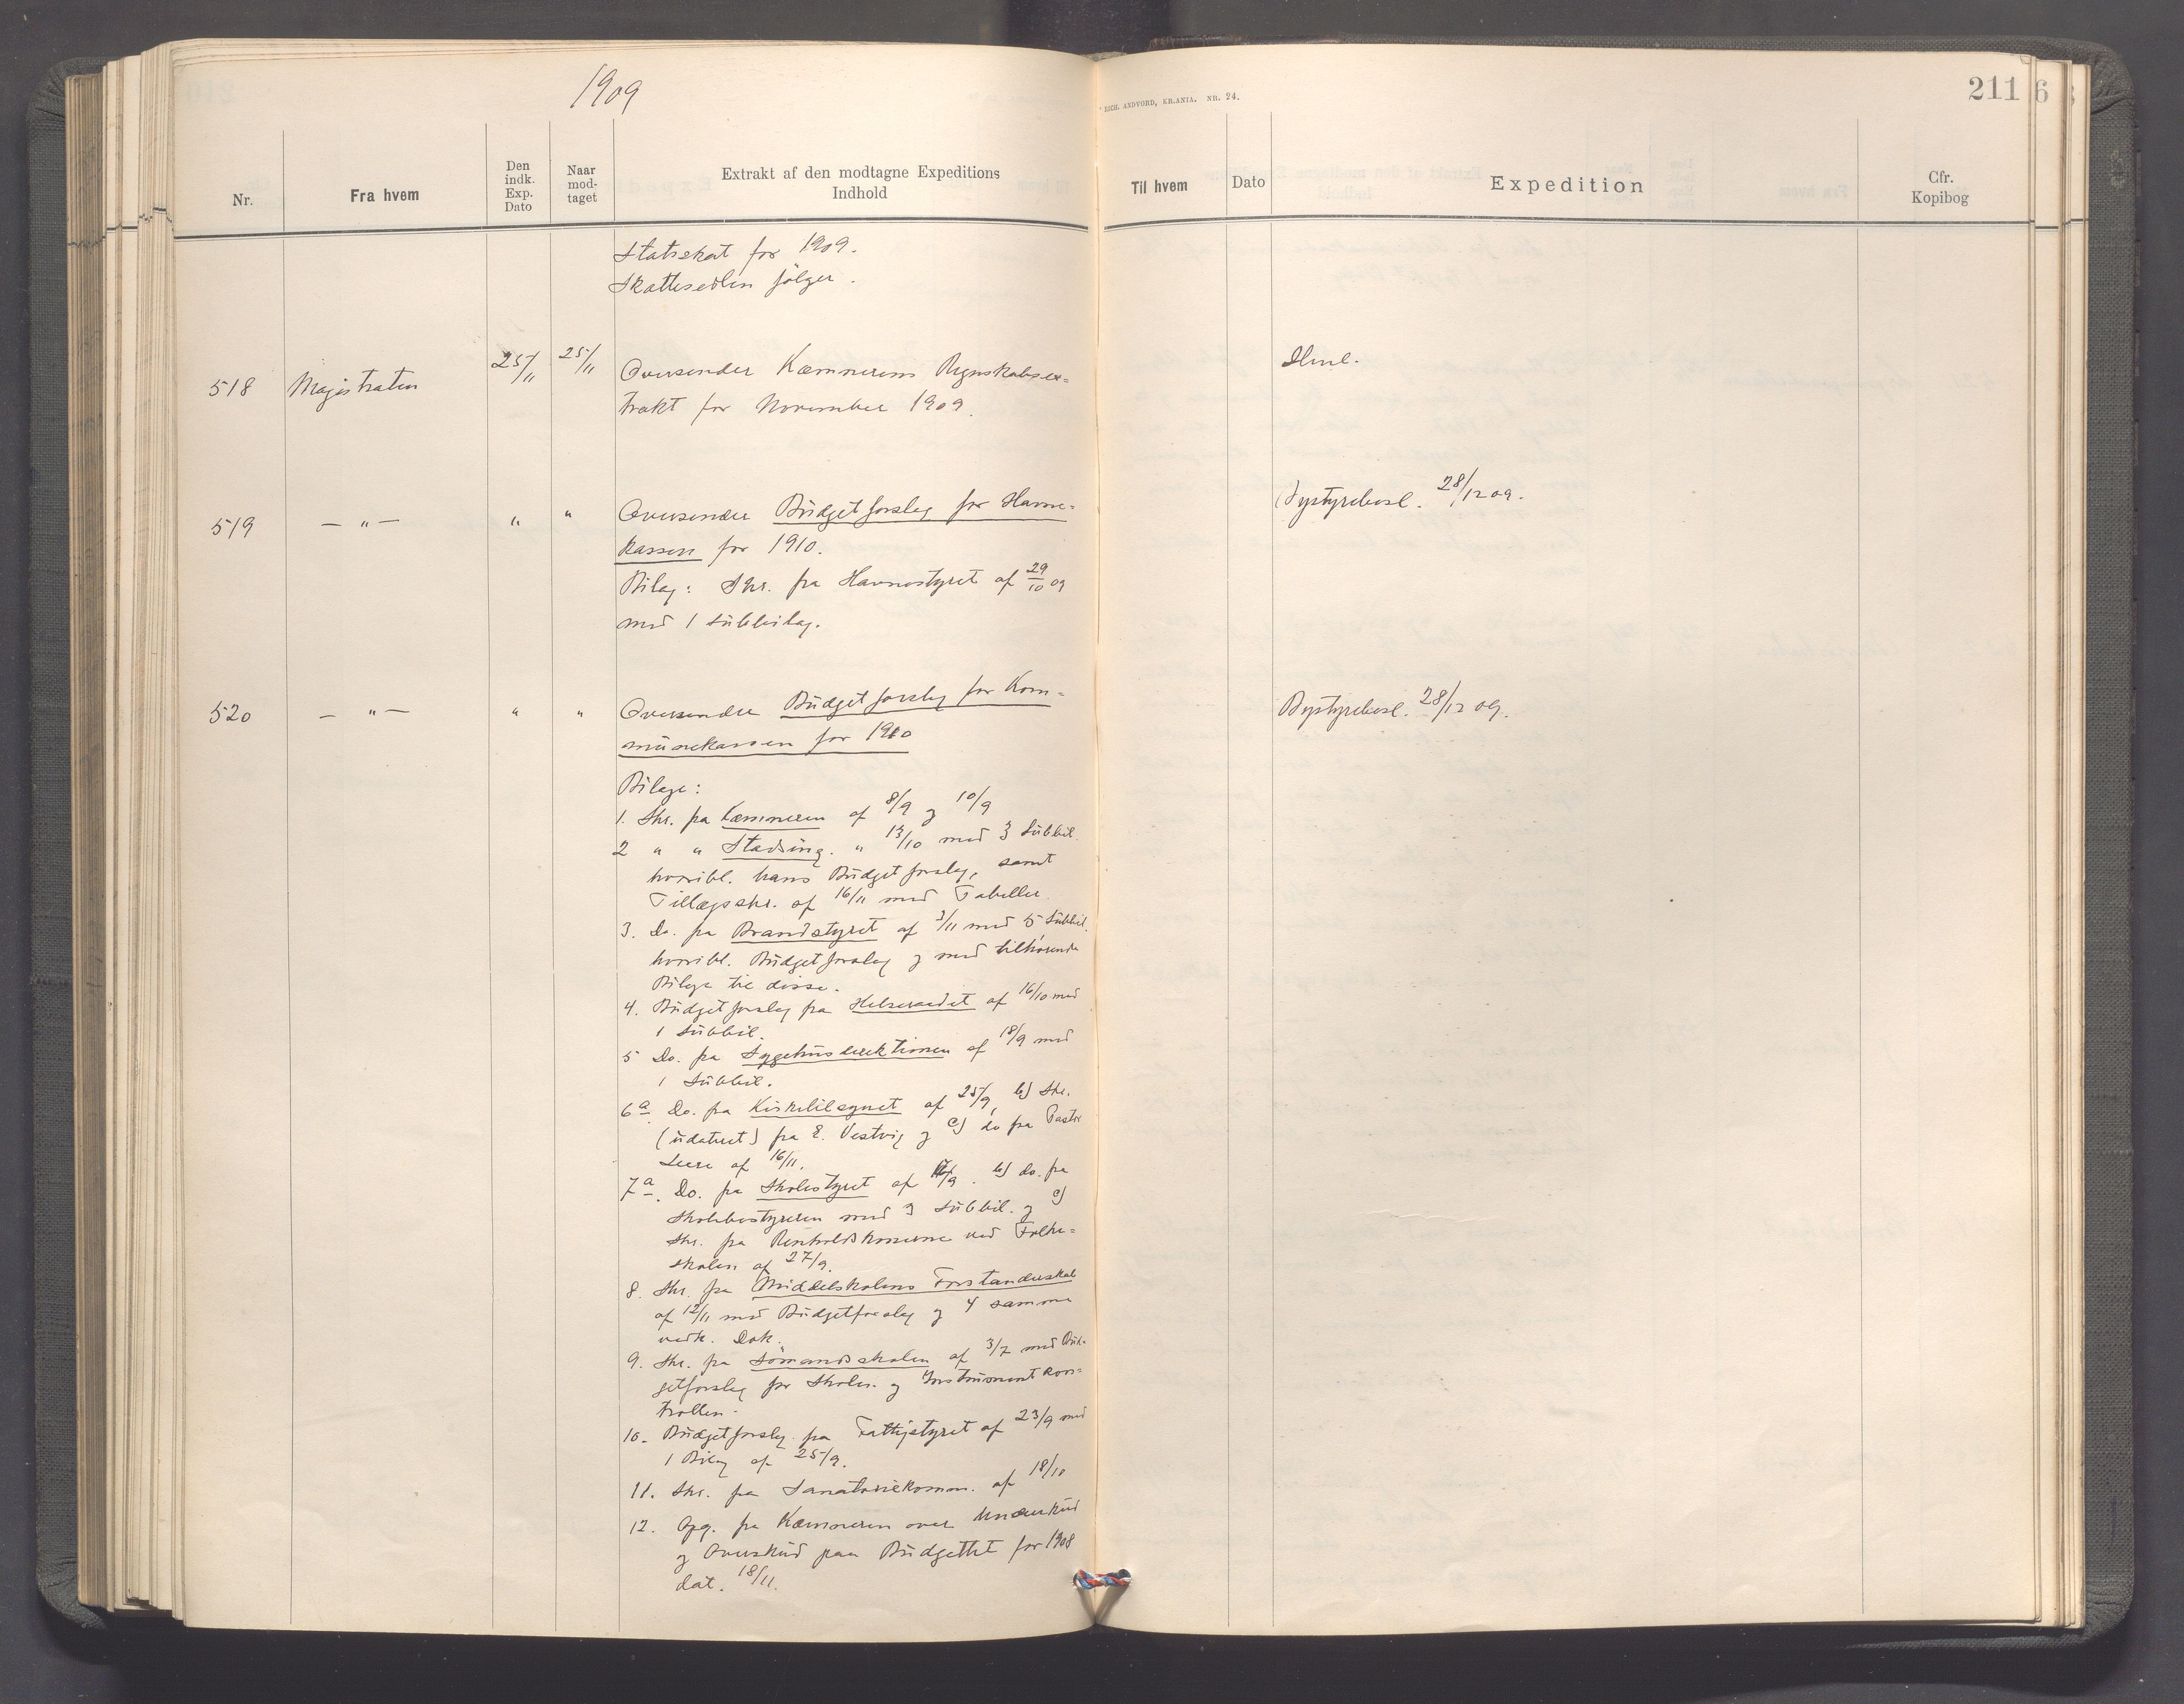 1909
RICH. ANDVORD, KR.ANIA. NR. 24.
211
6
Nr.
Fra hvem
Den indk. Exp. Dato
Naar mod-taget
Extrakt af den modtagne Expeditions Indhold
Til hvem
Dato
Expedition
Cfr. Kopibog
Statsskat for 1909.
Skattesedlen følger.
518 Magistraten 25/11 25/11 Oversender Kæmnerens Regnskabsex=
trakt for November 1909.
519 — " — " " Oversender Budgetforslag for Havne=
kassen for 1910.
Bystyrebesl. 28/12 09.
Bilag: Skr. fra Havnestyret af 29/10 09
med 1 Subbilag.
520 — " — " " Oversender Budgetforslag for Kom=
munekassen for 1910
Bystyrebesl. 28/12 09.
Bilage:
1. Skr. fra Kæmneren af 8/9 og 10/9
2 " " Stadsing. " 13/10 med 3 Subbil.
hvoribl. hans Budgetforslag, samt
Tillægsskr. af 16/11 med Tabeller.
3. Do. fra Brandstyret af 3/11 med 5 Subbil.
hvoribl. Budgetforslag og med tilhørende
Bilage til disse.
4. Budgetforslag fra Helseraadet af 16/10 med
1 Subbil.
5 Do. fra Sygehusdirektionen af 18/9 med
1 Subbil.
6a. Do. fra Kirketilsynet af 25/9, b) Skr.
(udateret) fra E. Vestvig og c) do fra Pastor
af 16/11.
7a. Do. fra Skolestyret af /9. b) Do. fra
Skolebestyreren med 3 Subbil. og c)
Skr. fra Renholdskonerne ved Folke=
skolen af 27/9.
8. Skr. fra Middelskolens Forstanderskab
af 12/11 med Budgetforslag og 4 samme
vedk. Dok.
9. Skr. fra Sømandsskolen af 3/7 med Bud-
getforslag for Skolen og Instrumentkon=
trollen.
10. Budgetforslag fra Fattigstyret af 23/9 med
1 Bilag af 25/9.
11. Skr. fra Sanatoriekomm. af 18/10
12. Opg. fra Kæmneren over Underskud
og Overskud paa Budgettet for 1908
dat. 18/11.